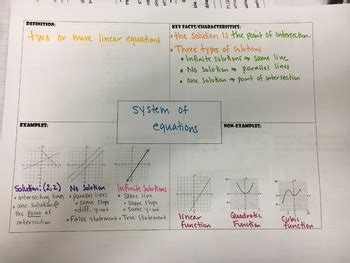 DEFINITION:
two or more linear equations
KEY FACTS/CHARACTERISTICS:
• the solution is the point of intersection.
• Three types of solutions
• Infinite solutions → same line
• No solution → parallel lines
• one solution → point of intersection
system of
equations
EXAMPLES:
Solution: (2,2)
• intersecting lines
• one solution @
the point of
intersection
No Solution
• parallel lines
• same slope
• diff. y-int
• False statement
Infinite Solutions
• Same line
• same slope
• same y-int
• True statement
NON-EXAMPLES:
linear
function
Quadratic
Function
Cubic
function